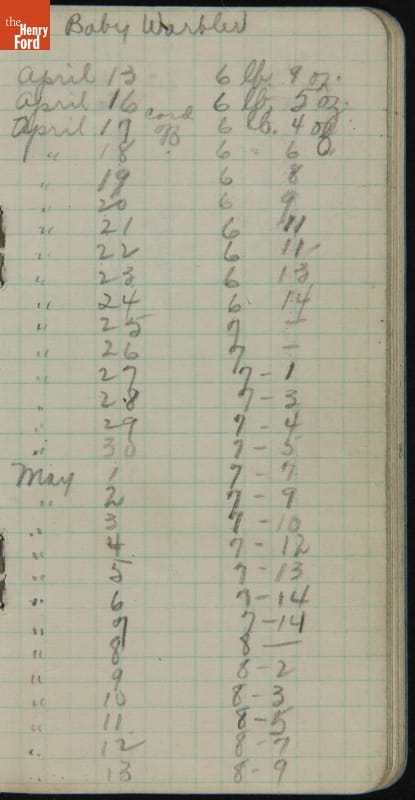 the
Henry
Ford
Baby Warbler
April 13 - 6 lb. 9 oz.
April 16 6 lb. 5 oz.
April 17 cord off 6 lb. 4 oz
" 18 6 " 6
" 19 6 8
" 20 6 9
" 21 6 11
" 22 6 11
" 23 6 13
" 24 6 14
" 25 7 -
" 26 7 -
" 27 7 - 1
" 28 7 - 3
" 29 7 - 4
" 30 7 - 5
May 1 7 - 7
" 2 7 - 9
" 3 7 - 10
" 4 7 - 12
" 5 7 - 13
" 6 7 - 14
" 7 7 - 14
" 8 8 —
" 9 8 - 2
" 10 8 - 3
" 11 8 - 5
" 12 8 - 7
" 13 8 - 9